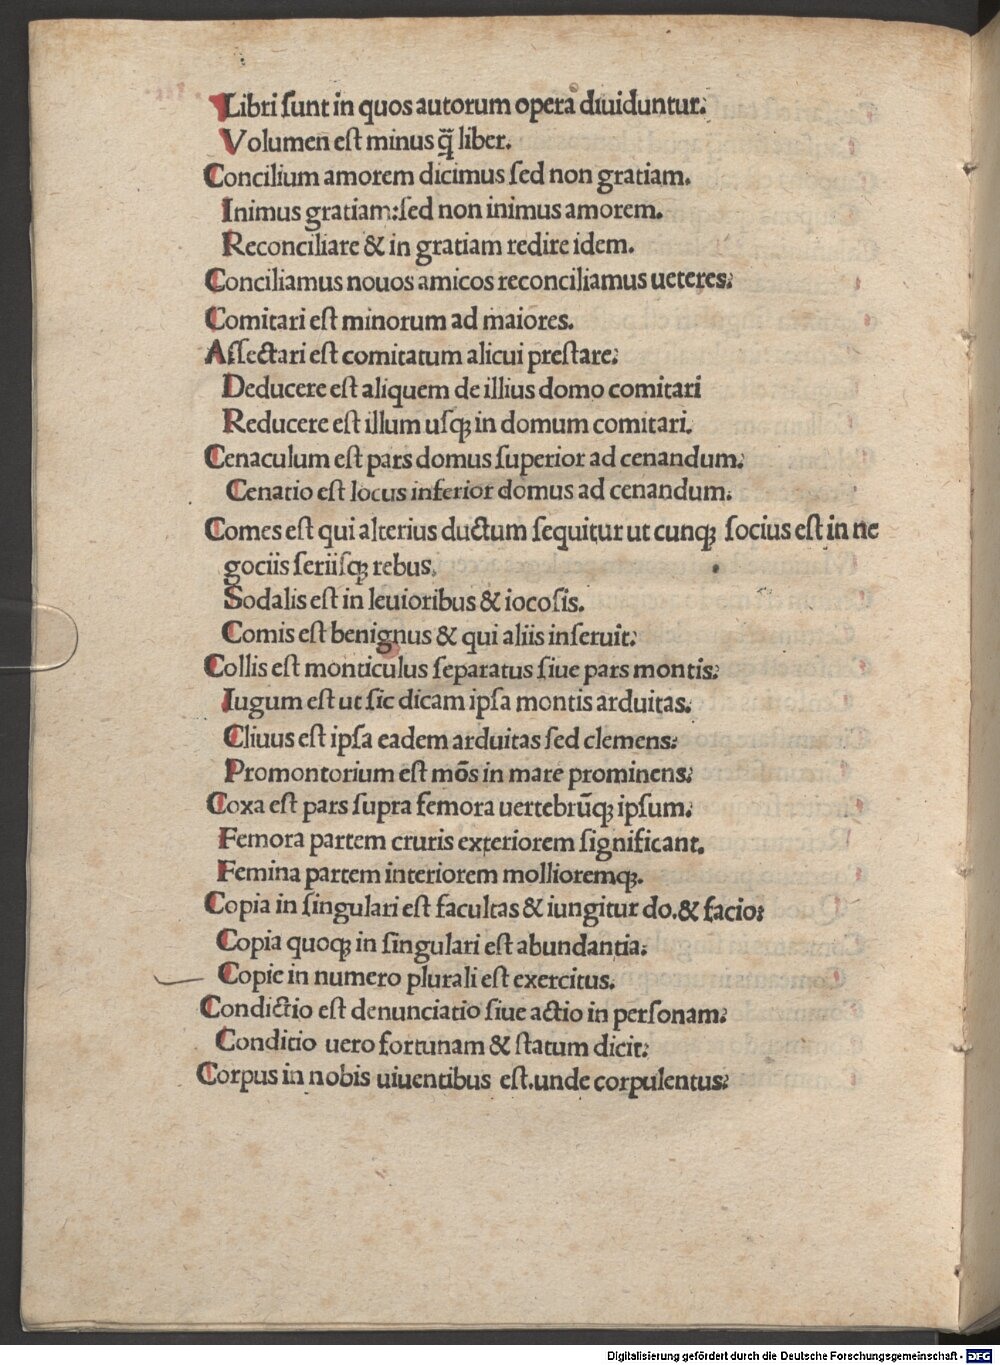 Libri ſunt in quos autorum opera diuiduntur:
Volumen eſt minus q̃ liber.
Concilium amorem dicimus ſed non gratiam.
Inimus gratiam:ſed non inimus amorem.
Reconciliare & in gratiam redire idem.
Conciliamus nouos amicos reconciliamus ueteres:
Comitari eſt minorum ad maiores.
Aſſectari eſt comitatum alicui preſtare:
Deducere eſt aliquem de illius domo comitari
Reducere eſt illum uſqꝫ in domum comitari.
Cenaculum eſt pars domus ſuperior ad cenandum:
Cenatio eſt locus inferior domus ad cenandum:
Comes eſt qui alterius ductum ſequitur ut cunqꝫ ſocius eſt in ne
gociis ſeriiſqꝫ rebus.
Sodalis eſt in leuioribus & iocoſis.
Comis eſt benignus & qui aliis inſeruit:
Collis eſt monticulus ſeparatus ſiue pars montis:
Iugum eſt ut ſic dicam ipſa montis arduitas:
Cliuus eſt ipſa eadem arduitas ſed clemens:
Promontorium eſt mōs in mare prominens:
Coxa eſt pars ſupra femora uertebrūqꝫ ipſum:
Femora partem cruris exteriorem ſignificant.
Femina partem interiorem mollioremqꝫ.
Copia in ſingulari eſt facultas & iungitur do.& facio:
Copia quoqꝫ in ſingulari eſt abundantia:
Copie in numero plurali eſt exercitus.
Condictio eſt denunciatio ſiue actio in perſonam:
Conditio uero fortunam & ſtatum dicit:
Corpus in nobis uiuentibus eſt.unde corpulentus:
Digitalisierung gefördert durch die Deutsche Forschungsgemeinschaft - DFG